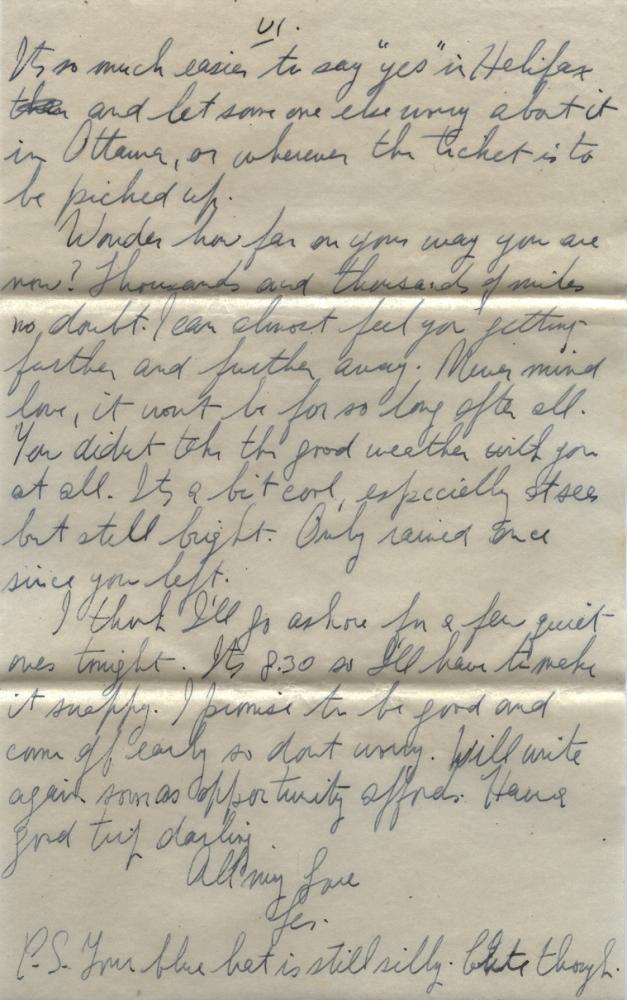 VI.
Its so much easier to say "yes" in Halifax
than and let some one else worry about it
in Ottawa, or wherever the ticket is to
be picked up.
Wonder how far on your way you are
now? Thousands and thousands of miles
no doubt. I can almost feel you getting
further and further away. Never mind
love, it wont be for so long after all.
You didnt take the good weather with you
at all. Its a bit cool, especially at sea
but still bright. Only rained once
since you left.
I think I'll go ashore for a few quiet
ones tonight. Its 8.30 so I'll have to make
it snappy. I promise to be good and
come off early so dont worry. Will write
again soon as opportunity affords. Have a
good trip darling.
All my love
P.S. Your blue hat is still silly. Cute though.